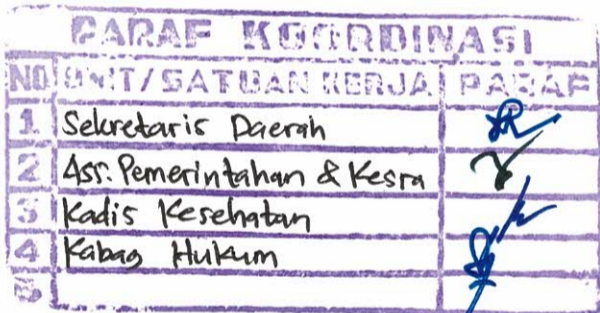 PARAF KOORDINASI
NO UNIT/SATUAN KERJA PARAF
1 Sekretaris Daerah
2 Ass. Pemerintahan & Kesra
3 Kadis Kesehatan
4 Kabag Hukum
5